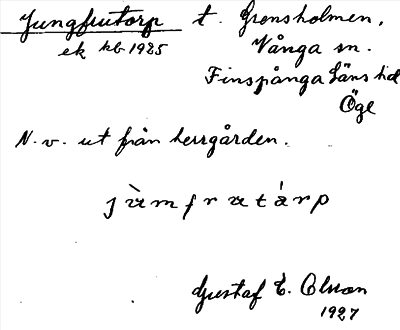 Jungfrutorp t. Grensholmen,
ek kb 1925 Vånga sn.
Finspånga läns hd
Ögl
N. v. ut från herrgården.
jùmfrutárp
Gustaf E. Olsson
1927